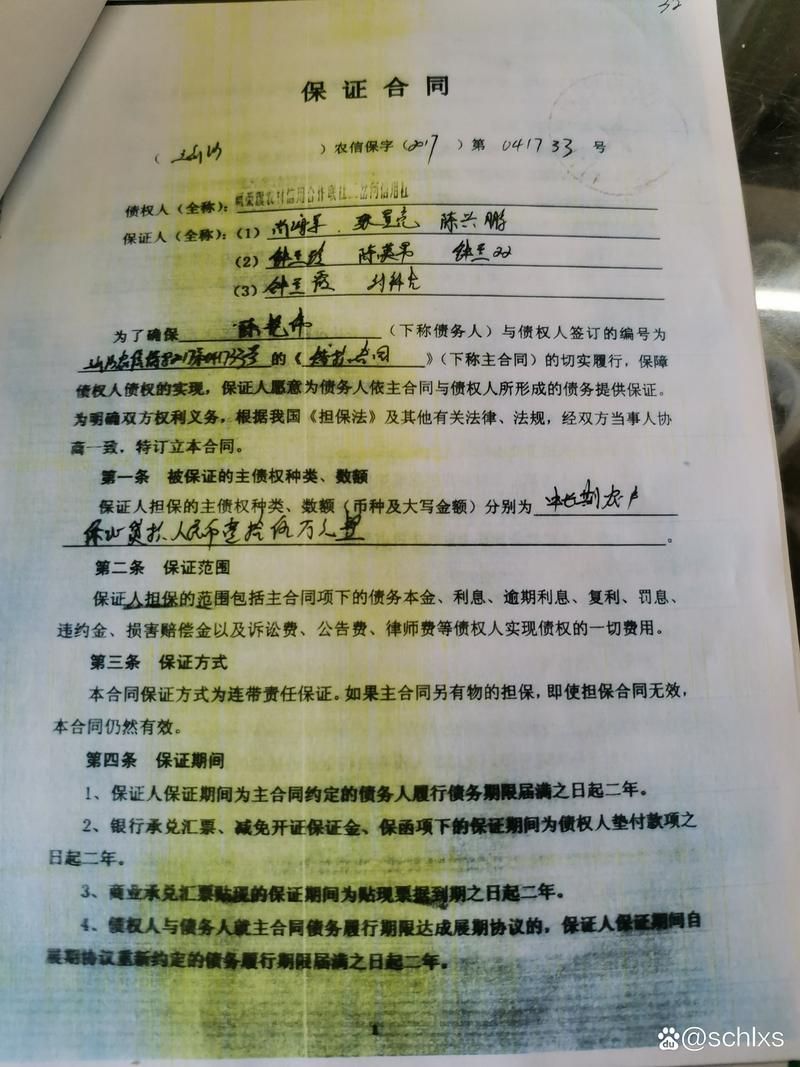 保证合同
）农信保字（2017）第 041733 号
债权人（全称）：
保证人（全称）：（1） 陈兴鹏
（2）
（3）
为了确保（下称债务人）与债权人签订的编号为
的《借款合同》（下称主合同）的切实履行，保障
债权人债权的实现，保证人愿意为债务人依主合同与债权人所形成的债务提供保证。
为明确双方权利义务，根据我国《担保法》及其他有关法律、法规，经双方当事人协
商一致，特订立本合同。
第一条 被保证的主债权种类、数额
保证人担保的主债权种类、数额（币种及大写金额）分别为 中长期农户
保证贷款人民币壹拾伍万元整。
第二条 保证范围
保证人担保的范围包括主合同项下的债务本金、利息、逾期利息、复利、罚息、
违约金、损害赔偿金以及诉讼费、公告费、律师费等债权人实现债权的一切费用。
第三条 保证方式
本合同保证方式为连带责任保证。如果主合同另有物的担保，即使担保合同无效，
本合同仍然有效。
第四条 保证期间
1、保证人保证期间为主合同约定的债务人履行债务期限届满之日起二年。
2、银行承兑汇票、减免开证保证金、保函项下的保证期间为债权人垫付款项之
日起二年。
3、商业承兑汇票贴现的保证期间为贴现票据到期之日起二年。
4、债权人与债务人就主合同债务履行期限达成展期协议的，保证人保证期间自
展期协议重新约定的债务履行期限届满之日起二年。
1
@schlxs